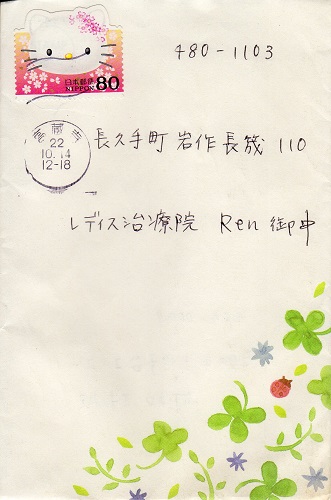 日本郵便
NIPPON 80
22
10.14
12-18
480-1103
長久手町岩作長筬110
レディス治療院 Ren 御中